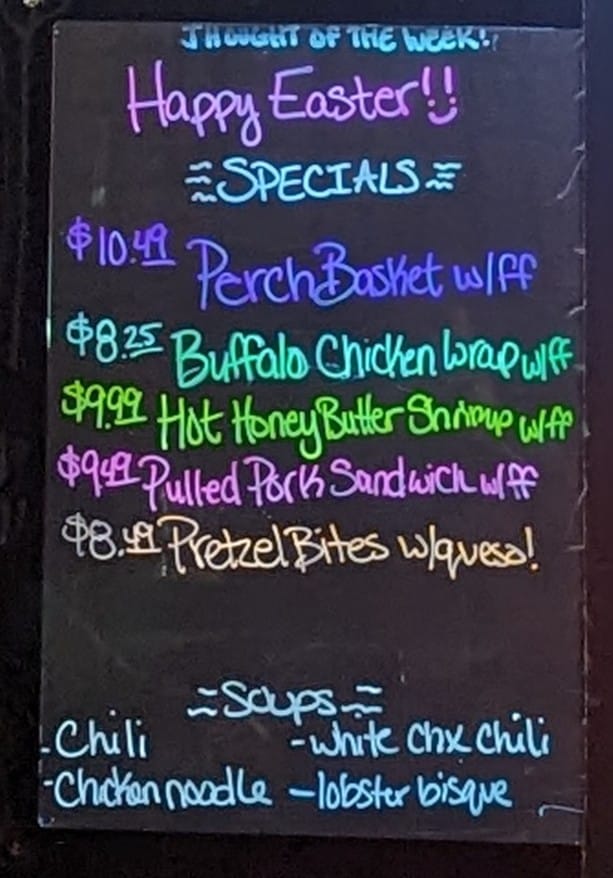 THOUGHT OF THE WEEK!
Happy Easter!!
SPECIALS
$10.49 Perch Basket w/ff
$8.25 Buffalo Chicken Wrap w/ff
$9.99 Hot Honey Butter Shrimp w/ff
$9.49 Pulled Pork Sandwich w/ff
$8.49 Pretzel Bites w/queso!
Soups
-Chili -white chx chili
-Chicken noodle -lobster bisque